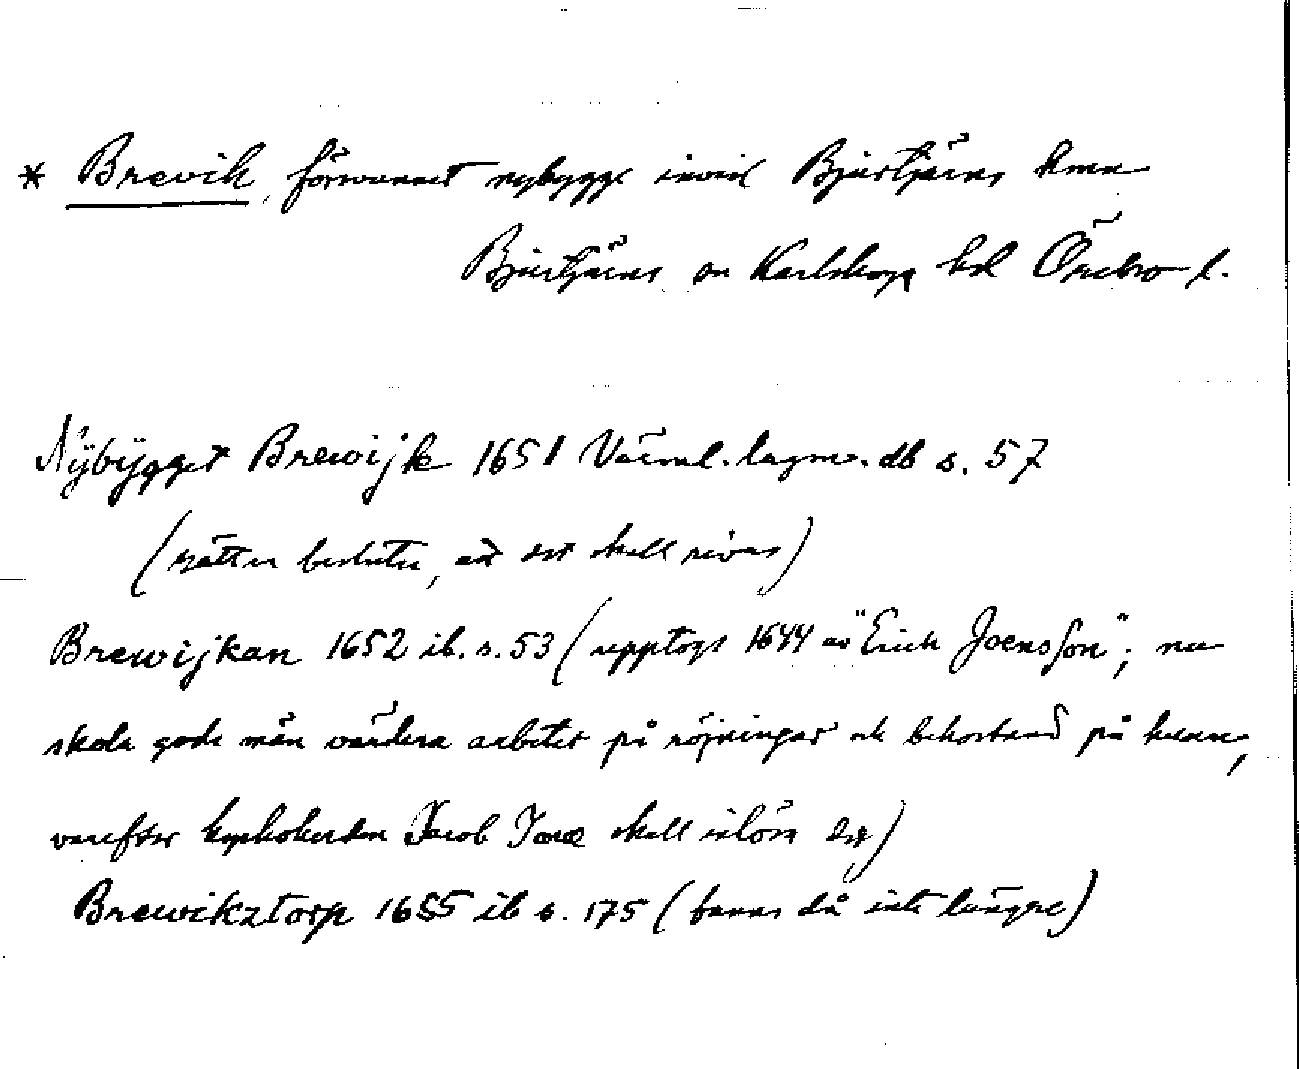 * Brevik, försvunnet nybygge invid Bjurtjärns kman
Bjurtjärns sn Karlskoga bsl Örebro l.
Nÿbÿgget Brewijk 1651 Värml. lagm. db s. 57
(rätten beslutar, att det skall rivas)
Brewijkan 1652 ib. s. 53 (upptogs 1644 av "Erich Joensson"; nu
skola gode män värdera arbetet på röjningar och bekostnad på husen,
varefter kyrkoherden Jacob skall inlösa det)
Brewikztorp 1655 ib s. 175 (fanns då inte längre)